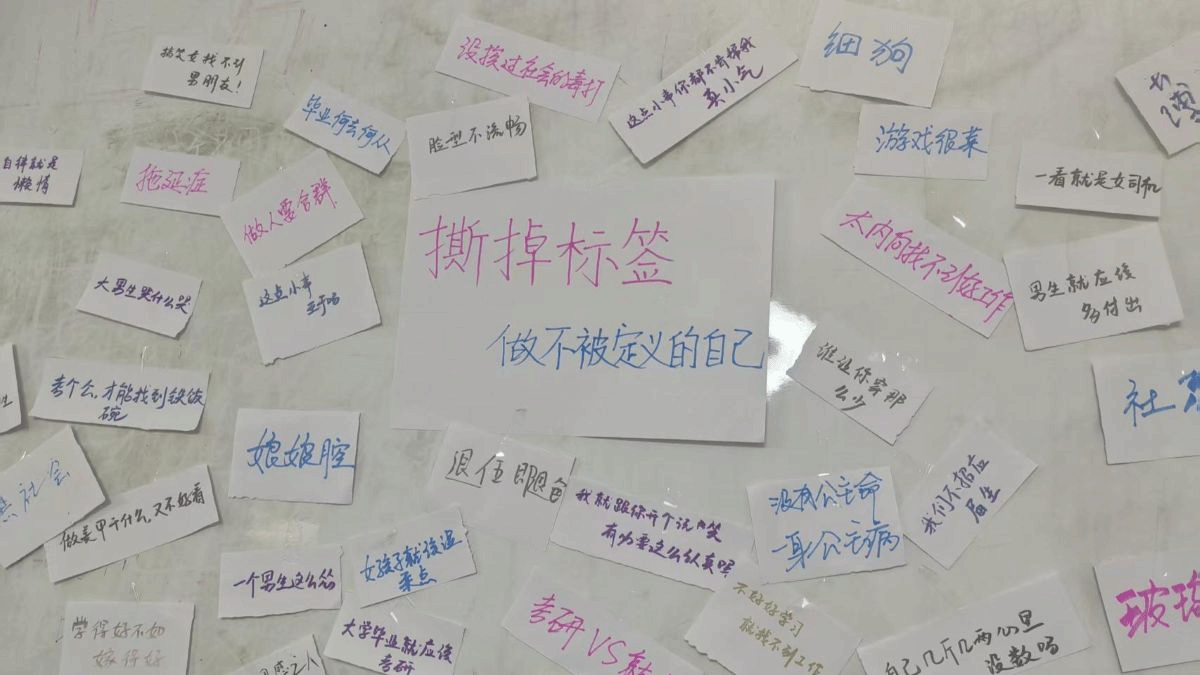 搞笑女找不到
男朋友！
没挨过社会的毒打
这点小事你都不肯帮我
真小气
细狗
毕业何去何从
脸型不流畅
游戏很菜
一看就是女司机
自律就是
矫情
拖延症
做人要合群
撕掉标签
做不被定义的自己
太内向找不到好工作
男生就应该
多付出
大男生哭什么哭
这点小事
至于吗
谁让你穿那
么少
考个公，才能找到铁饭
碗
娘娘腔
社恐
社会
做美甲干什么，又不好看
没有公主命
一身公主病
我们不招应
届生
我就跟你开个玩笑
有必要这么认真吗
一个男生这么怂
女孩子就该温
柔点
学得好不如
嫁得好
大学毕业就应该
考研
考研VS就
不好好学习
就找不到工作
自己几斤几两心里
没数吗
玻璃